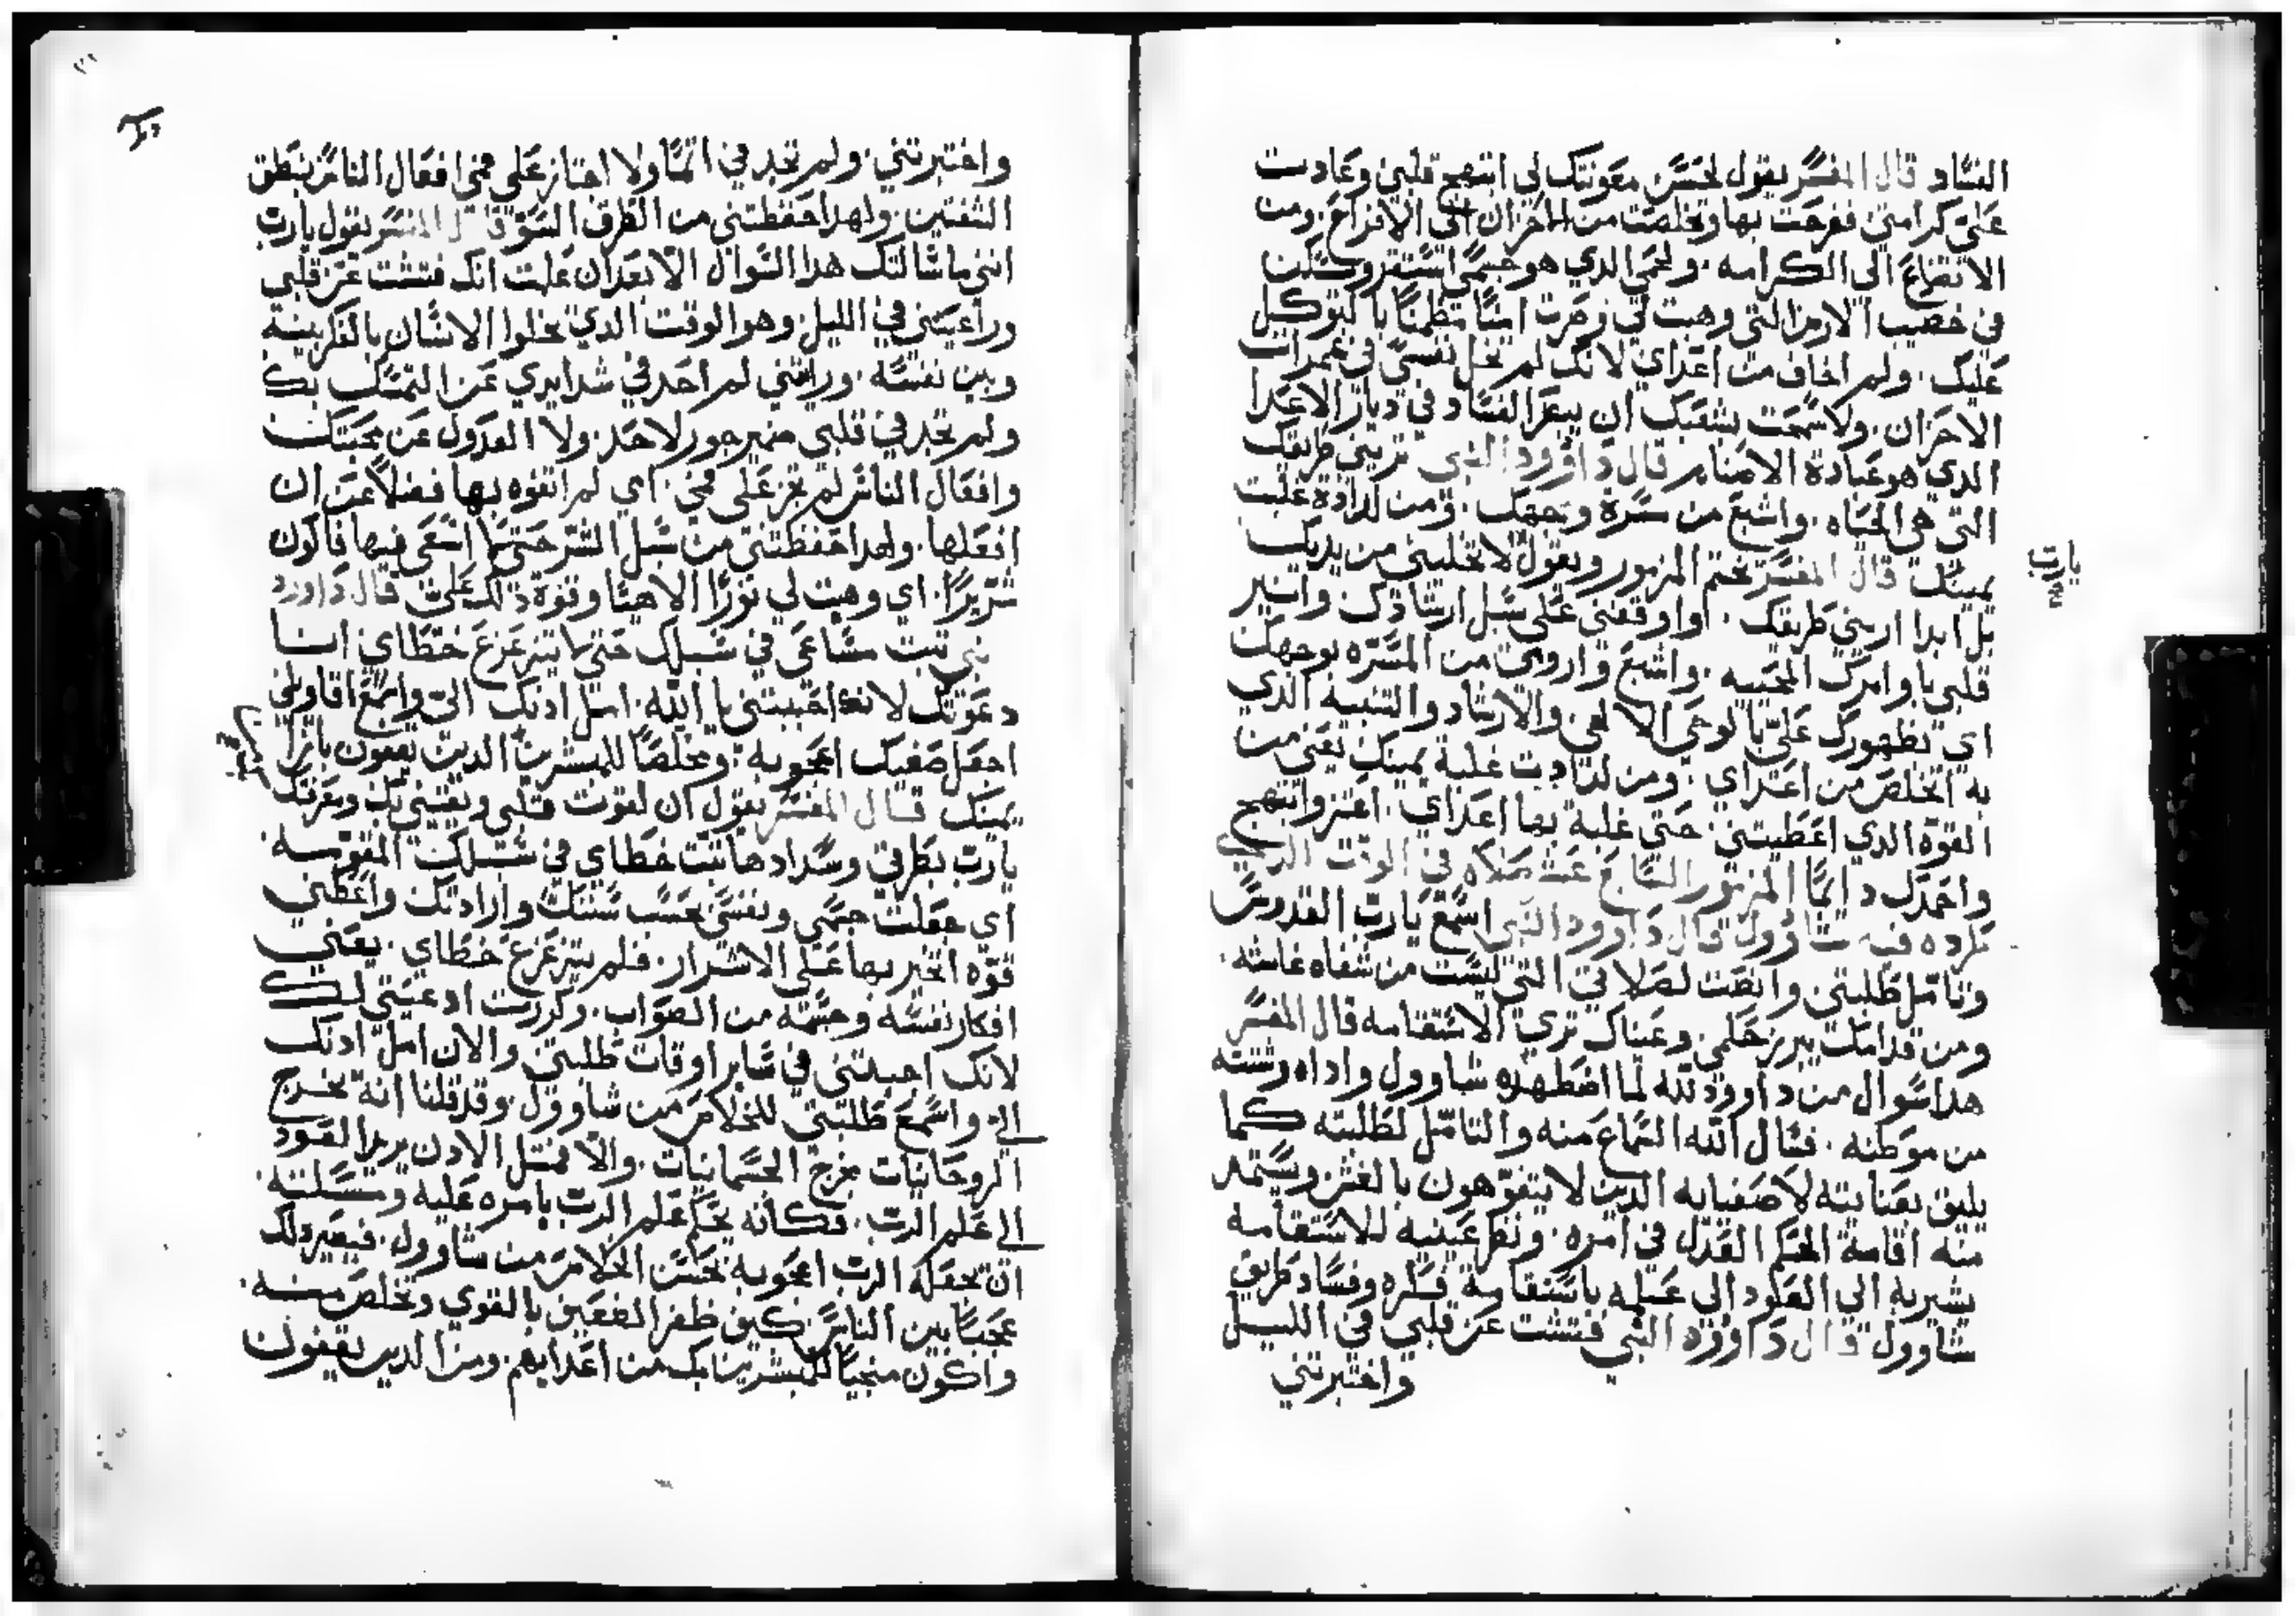 الفساد قال المفسر يقول لحسن معونتك لي ابتهج قلبي وعادت
علي كرامتي ففرحت بها وتخلصت من الاحزان الى الافراح. ومن
الاتضاع الى الكرامه. ولحمي الدي هو جسمي استقر وسكن
في خصيب الارض التي وهبت لي وصرت امنًا مطمنًا بالتوكل
عليك. ولم اخاف من اعداي لانك لم تخل نفسي في غمرات
الاحزان. ولا سمحت بشعبك ان يبقى الفساد في ديار الاعدا
الدي هو عبادة الاصنام قال داوود النبي تريني طريقك
التي هي الحياه. واشبع من مسرة وجهك. ومن لدادة غلبت
يمينك قال المفسر ختم المزمور ويقول لا تخليني من يديك
يارب
بل ابدا اريني طريقك. اوا وقفني على سبل ارشادك وانير
قلبي باوامرك المحييه. واشبع واروي من المسره بوجهك
اي بظهورك علي بالوحي الالهي والارشاد والتنبيه الدي
به اتخلص من اعداي. ومن لدادت غلبة يمينك يعني من
القوه الدي اعطيتني حتى غلبة بها اعداي. اعتز وابتهج
واحمدك دايمًا المزمور السادس عشر صلاه في الوقت الدي
طرده فيه شاوول قال داوود النبي اسمع يارب القدوس
وتامل طلبتي وانصت لصلاتي التي ليست من شفاه غاشه.
ومن قدامك يبرز حكمي. وعيناك تري الاستقامه قال المفسر
هدا سوال من داوود لله لما اضطهده شاوول واداه وشتته
من موطنه. فسال الله السماع منه والتامل لطلبته كما
يليق بعنايته لاصفيايه الدين لا يتفوهون بالغش ويستمد
منه اقامة الحكم العدل في امره. ونظر عينيه للاستقامه
يشير به الي العود الي عمله باستقامة فكره وفساد طريق
شاوول قال داوود النبي فتشت عن قلبي في الليل
واختبرتني
واختبرتني. ولم تجد في اثمًا ولا اجتاز على فمي افعال الناس بنطق
الشفتين. ولهدا حفظتني من الطرق السو قال المفسر يقول يارب
انني ما سالتك هدا السوال الا بعد ان علمت انك فتشت عن قلبي
وراعيتني في الليل وهو الوقت الدي يخلوا الانسان بالفكر بينه
وبين نفسه. ورايتني لم احد في شدايدي عن التمسك بك
ولم تجد في قلبي ضمير جور لاحد. ولا العدول عن محبتك
وافعال الناس لم تجز على فمي. اي لم اتفوه بها فضلًا عن ان
افعلها. ولهدا حفظتني من سبل الشر حتى لا اسعى فيها فاكون
شريرًا. اي وهبت لي نورًا الاهيًا وقوة دلك علي قال داوود
نبي تبت مساعي في سبلك حتي لا تتزعزع خطاي انا
دعوتك لانك اجبتني يا الله. امل ادنك الي واسمع اقاويلي
اجعل صفيك اعجوبه. ومخلصًا للمبشرين الدين يقفون بازا
يمينك قال المفسر يقول ان لقوت قلبي ويقيني بك ومعرفتك
يارب بطرقي وسدادها تبت خطاي في سبلك المقدسه
اي جعلت جسمي ونفسي بحسب سننك وارادتك واعطني
قوه اتخير بها على الاشرار. فلم يتزعزع خطاي. يعني
افكار نفسه وجسمه من الصواب. وكررت ادعيتي لك
لانك اجبتني في ساير اوقات طلبتي والان امل ادنك
الي واسمع طلبتي للخلاص من شاوول. وقد قلنا انه يخرج
الروحانيات مخرج الجسمانيات. والا فمثل الادن يريد العود
الي علم الرب. فكانه يحكم علم الرب بامره عليه ومسلته.
ان تجعله الرب اعجوبه بحسن الخلاص من شاوول. فيصير دلك
عجبًا بين الناس كيف ظفر الضعيف بالقوي وتخلص منه.
واكون منجيًا للمبشرين بك من اعدايهم. ومن الدين يقفون